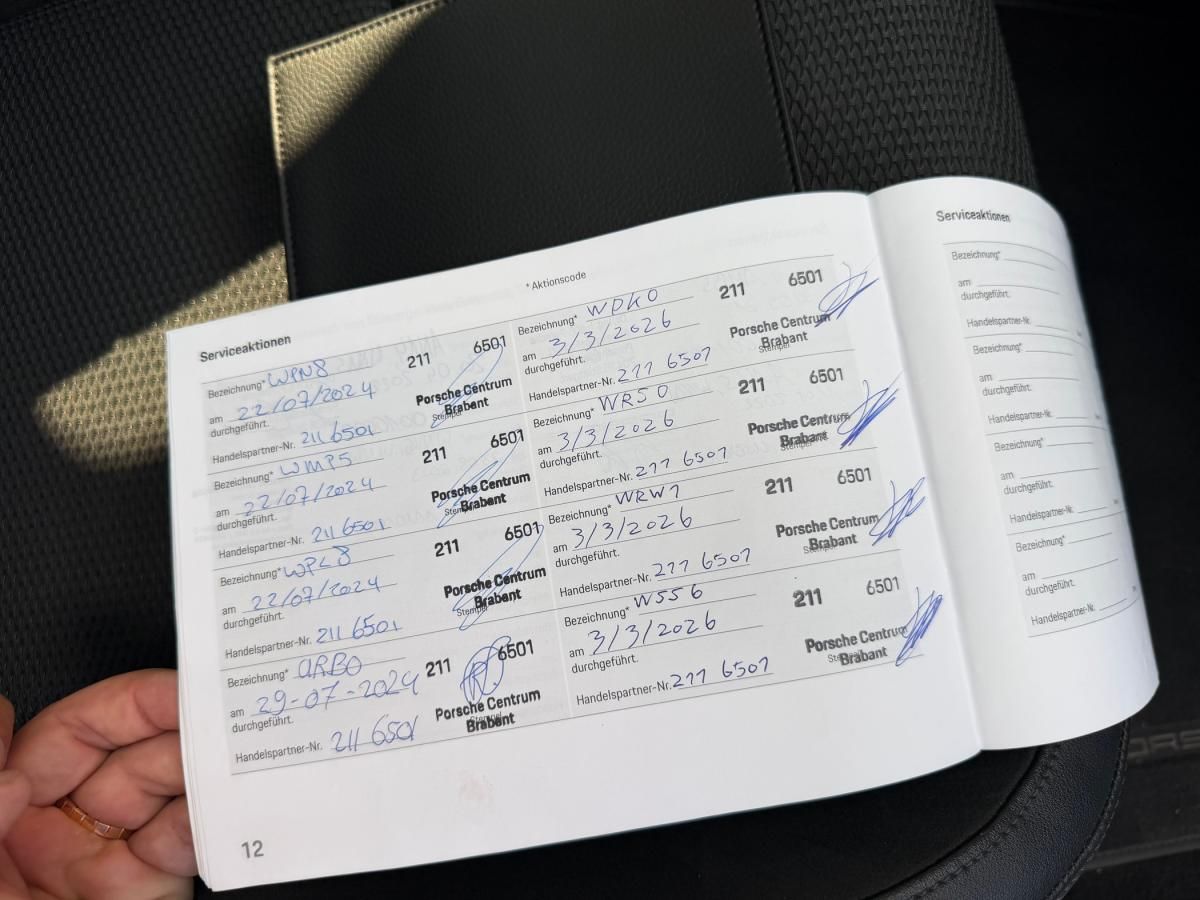 Serviceaktionen
* Aktionscode
Bezeichnung* WPN8
211 6501
am 22/07/2024
durchgeführt.
Porsche Centrum
Brabant
Stempel
Handelspartner-Nr. 211 6501
Bezeichnung* WMP5
211 6501
am 22/07/2024
durchgeführt.
Porsche Centrum
Brabant
Handelspartner-Nr. 211 6501
Bezeichnung* WPL8
211 6501
am 22/07/2024
durchgeführt.
Porsche Centrum
Brabant
Stempel
Handelspartner-Nr. 211 6501
Bezeichnung* ARB0
211 6501
am 29-07-2024
durchgeführt.
Porsche Centrum
Brabant
Stempel
Handelspartner-Nr. 211 6501
Bezeichnung* WPK0
211 6501
am 3/3/2026
durchgeführt.
Porsche Centrum
Brabant
Stempel
Handelspartner-Nr. 211 6501
Bezeichnung* WR50
211 6501
am 3/3/2026
durchgeführt.
Porsche Centrum
Brabant
Stempel
Handelspartner-Nr. 211 6501
Bezeichnung* WRW1
211 6501
am 3/3/2026
durchgeführt.
Porsche Centrum
Brabant
Stempel
Handelspartner-Nr. 211 6501
Bezeichnung* W556
211 6501
am 3/3/2026
durchgeführt.
Porsche Centrum
Brabant
Stempel
Handelspartner-Nr. 211 6501
12
Serviceaktionen
Bezeichnung*
am
durchgeführt.
Handelspartner-Nr.
Bezeichnung*
am
durchgeführt.
Handelspartner-Nr.
Bezeichnung*
am
durchgeführt.
Handelspartner-Nr.
Bezeichnung*
am
durchgeführt.
Handelspartner-Nr.